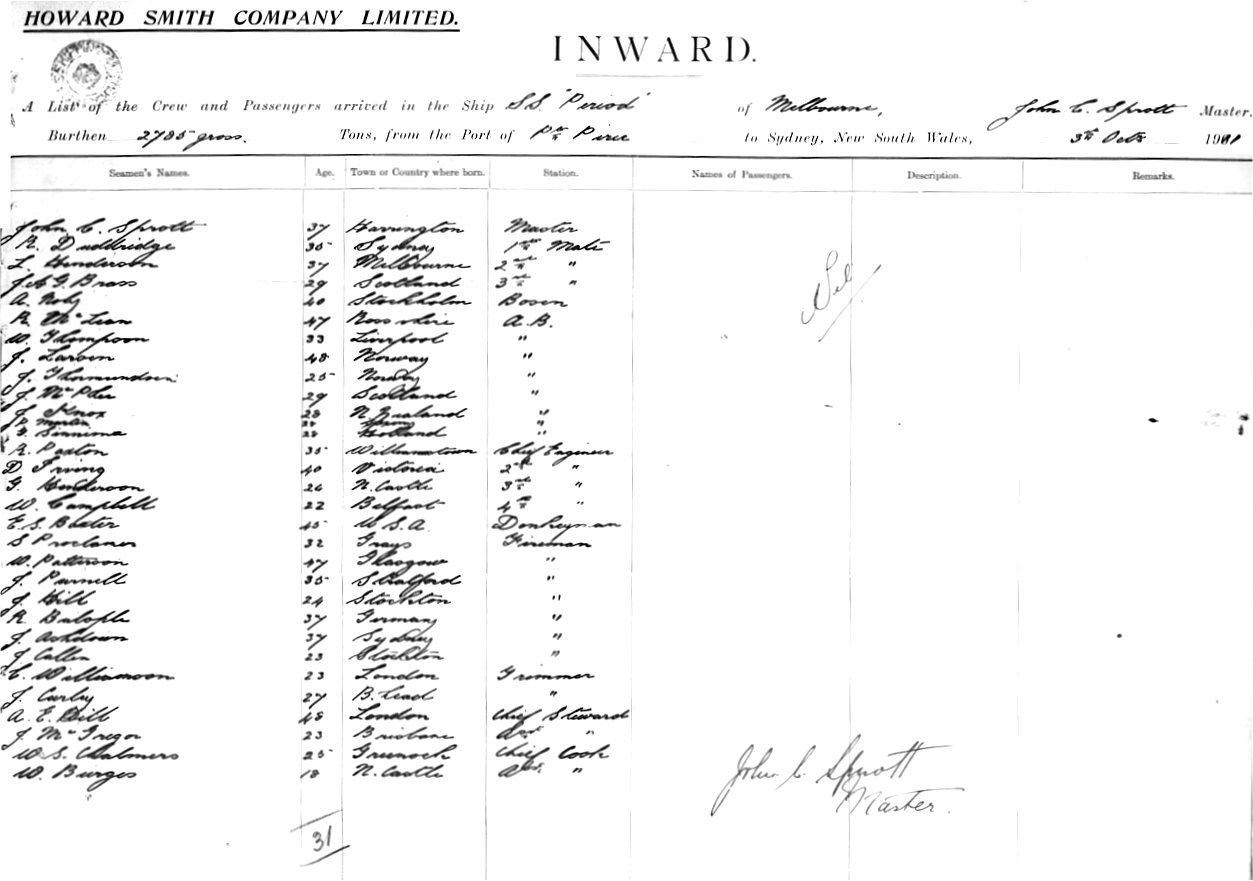 HOWARD SMITH COMPANY LIMITED.
INWARD.
A List of the Crew and Passengers arrived in the Ship S.S. "Period" of Melbourne, John C. Sprott Master.
Burthen 2785 gross. Tons, from the Port of Pt Pirie to Sydney, New South Wales, 3rd Octr 1901
Seamen's Names. Age. Town or Country where born. Station. Names of Passengers. Description. Remarks.
John C. Sprott 37 Harrington Master
R. Duddridge 35 Sydney 1st Mate
L. Henderson 37 Melbourne 2nd "
J. A. G. Brass 29 Scotland 3rd "
Nil
A. 40 Stockholm Bosen
R. McLean 47 Ross shire A.B.
W. Thompson 33 Liverpool "
J. Larsen 48 Norway "
J. Thormundsen 25 Norway "
J. McPhee 29 Scotland "
J. Knox 28 N. Zealand "
Martin 28 "
Sinnema 28 Holland "
R. Paxton 35 Williamstown Chief Engineer
D Irving 40 Victoria 2nd "
G. Henderson 26 N. Castle 3rd "
W. Campbell 22 Belfast 4th "
E. S. Baxter 45 U.S.A. Donkeyman
S 32 Grays Fireman
W. Patterson 47 Glasgow "
J. Purnell 35 Stratford "
J. Hill 24 Stockton "
R. 37 Germany "
J. Ashdown 37 Sydney "
J Cullen 23 Stockton "
C. Williamson 23 London Trimmer
J. Curley 27 B. Head "
A. E. 48 London Chief Steward
J. McGregor 23 Brisbane Asst "
W. S. Chalmers 25 Greenock Chief Cook
W. Burges 18 N. Castle Asst "
John C. Sprott
Master.
31